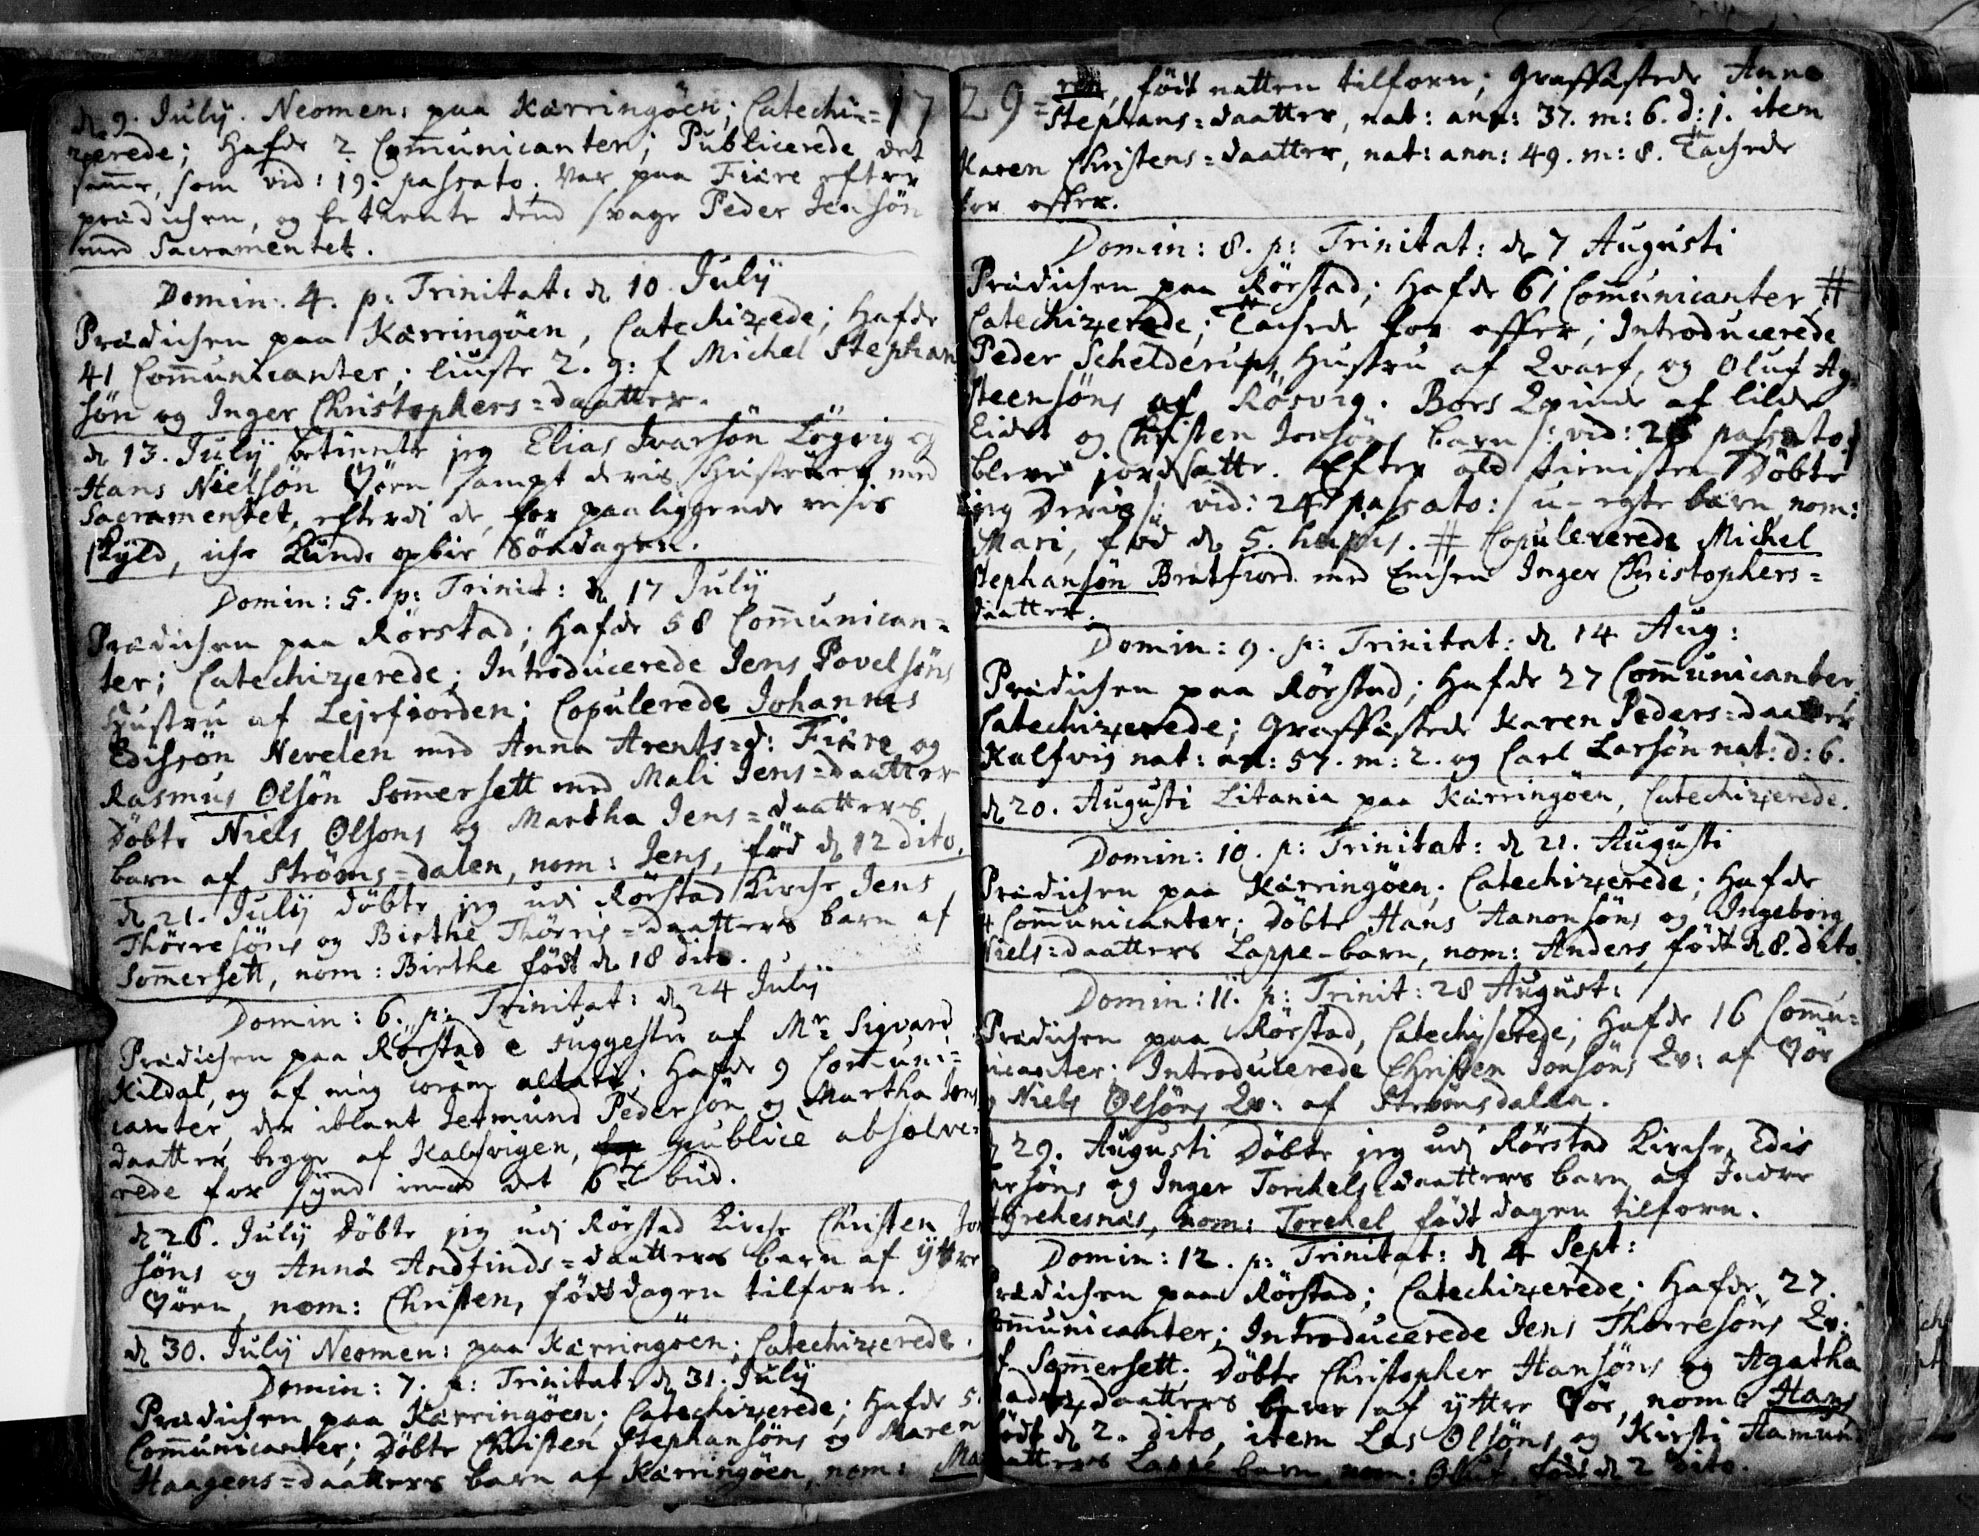 d. 9. July. Neomen: paa Kærringøen; Catechi-= 17
zerede; hafde 2 Communicanter; Publicerede det
samme, som vid: 19. passato. Var paa Fiære efter
prædichen, og betiente dend svage Peder Jensøn
med Sacramentet.
Domin: 4. p: Trinitat: d. 10 July
Prædichen paa Kærringøen, Catechizerede; hafde
41 Communicanter; liuste 2. g: f Michel Stephan
søn og Inger Christophers=daatter.
d. 13. July betiente jeg Elias Ivarsøn Løgvig og
Hans Nielsøn Vøen sampt deris Hustruer med
Sacramentet, efterdi de, for paaliggende reisis
skyld, iche kunde opbie Søndagen.
Domin: 5. p: Trinit: d. 17 July
Prædichen paa Rørstad; hafde 58 Communican=
ter; Catechizerede; Introducerede Jens Povelsøns
Hustru af Lejrfiorden; Copulerede Johannes
Edissøn Nevelen med Anna Arents=d: Fiære og
Rasmus Olsøn Sommersett med Mali Jens=daatter
Døbte Niels Olsøns og Martha Jens=daatters
barn af Strøms=dalen, nom: Jens, fød d. 12 dito.
d. 21. July døbte jeg udi Rørstad Kirche Jens
Thørresøns og Birthe Thørris=daatters barn af
Sommersett, nom: Birthe født d. 18 dito.
Domin: 6. p: Trinitat: d. 24 July
Prædichen paa Rørstad e suggestu af Mr. Sigvard
Kildal, og af mig coram altari; hafde 9 Communi=
canter, der iblant Jermund Pedersøn og Martha Jens
daatter begge af Kalfvigen, publice absolve=
rede for synd imod det 6te bud.
d. 26. July døbte jeg udi Rørstad Kirche Christen Jon
søns og Anna Andfinds=daatters barn af yttre
Vøen, nom: Christen, født dagen tilforn.
d. 30. July Neomen: paa Kærringøen; Catechizerede.
Domin: 7. p: Trinitat: d. 31. July
Prædichen paa Kærringøen; Catechizerede; hafde 5.
Communicanter; døbte Christen Stephansøns og Maren
Haagens=daatters barn af Kærringøen, nom: Ma
29= ren, født natten tilforn; Graffæstede Anne
Stephans=daatter, nat: ann: 37. m: 6. d: 1. item
Karen Christens=daatter, nat: ann: 49. m: 8. Tachede
for offer.
Domin: 8. p: Trinitat: d. 7 Augusti
Prædichen paa Rørstad; hafde 61 Communicanter #
Catechizerede; Tachede for offer; Introducerede
Peder Schelderups Hustru af Qvarf, og Oluf Ag=
steensøns af Røsvig. Bors Qvinde af lilde
Eidet og Christen Jonsøns barn /: vid: 26 passato:/
bleve jordsatte. Efter ald tienisten døbte
jeg /: vid: 24 passato:/ u-egte barn, nom:
Mari, fød d. 5. hujus. # Copulerede Michel
Stephansøn Bratfiord med Enchen Inger Christophers=
daatter.
Domin: 9. p: Trinitat: d. 14 Aug:
Prædichen paa Rørstad; hafde 27 Communicanter
Catechizerede; Graffæstede Karen Peders=daatter
Kalfvig nat: an: 57. m: 2. og Carl Larsøn nat: d: 6.
d. 20. Augusti Litania paa Kærringøen, Catechizerede.
Domin: 10. p: Trinitat: d. 21. Augusti
Prædichen paa Kærringøen; Catechizerede; hafde
4 Communicanter; døbte Hans Aanonsøns og Ingeborg
Niels=daatters Lappe-barn, nom: Anders, født d. 8. dito.
Domin: 11. p: Trinit: 28 August:
Prædichen paa Rørstad, Catechiserede; hafde 16 Commu=
nicanter; Introducerede Christen Jonsøns Qv: af Vøe
og Niels Olsøns Qv: af Strømsdalen.
d. 29. Augusti døbte jeg udi Rørstad Kirche Edis
søns og Inger Torchels=daatters barn af Indre
nom: Torchel født dagen tilforn.
Domin: 12. p: Trinitat: d. 4 Sept:
Prædichen paa Rørstad; Catechizerede; hafde 27.
Communicanter; Introducerede Jens Thørresøns Qv:
af Sommersett. Døbte Christopher Hansøns og Agatha
daatters barn af yttre Vøe, nom: Hans,
født d. 2. dito, item Las Olsøns og Kirsti Aamun
daatters Lappe barn, nom: Oluf, født d. 2 dito.